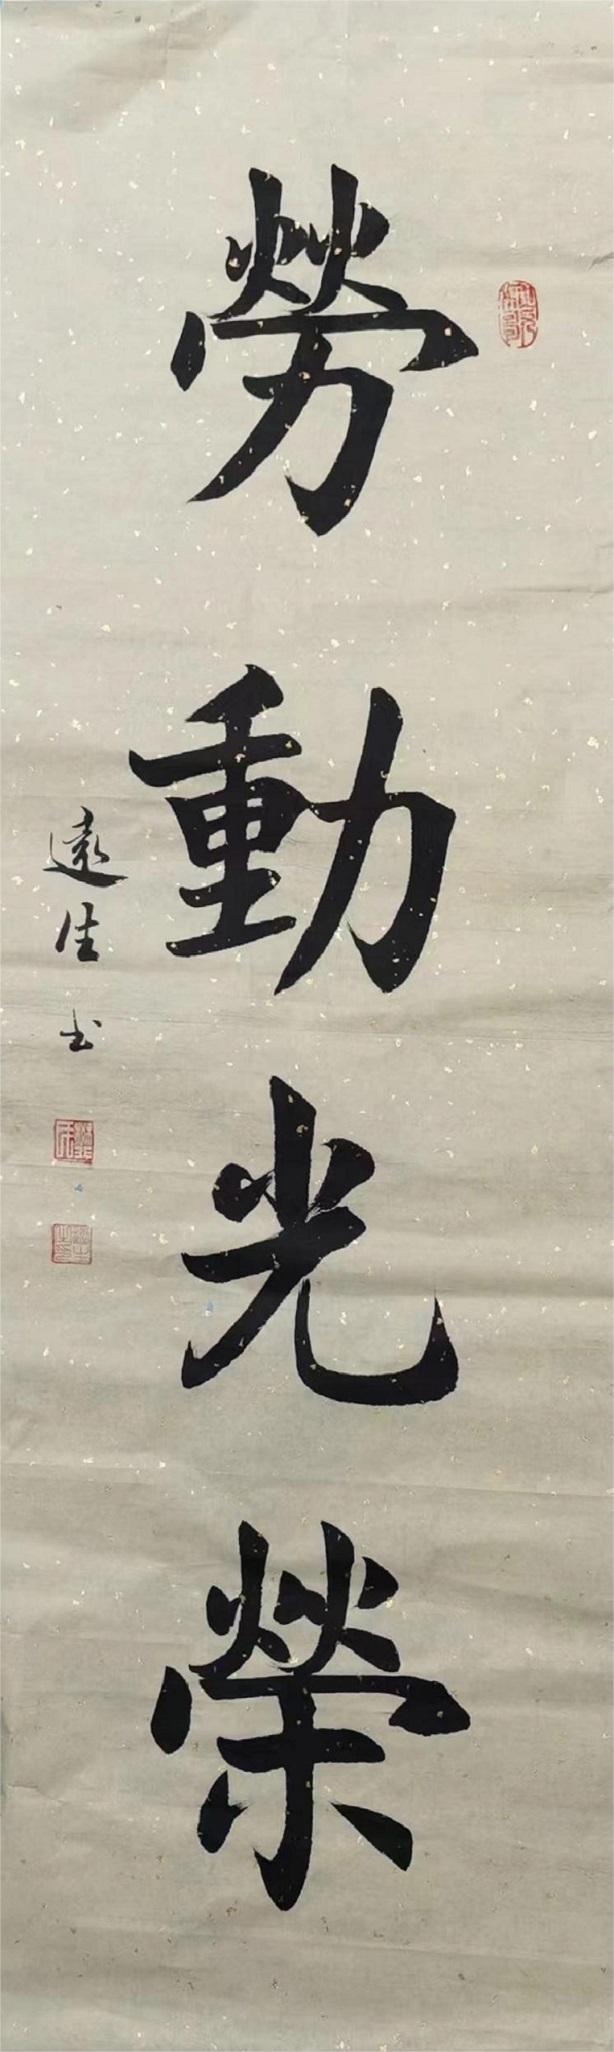 勞動光榮
遠生书